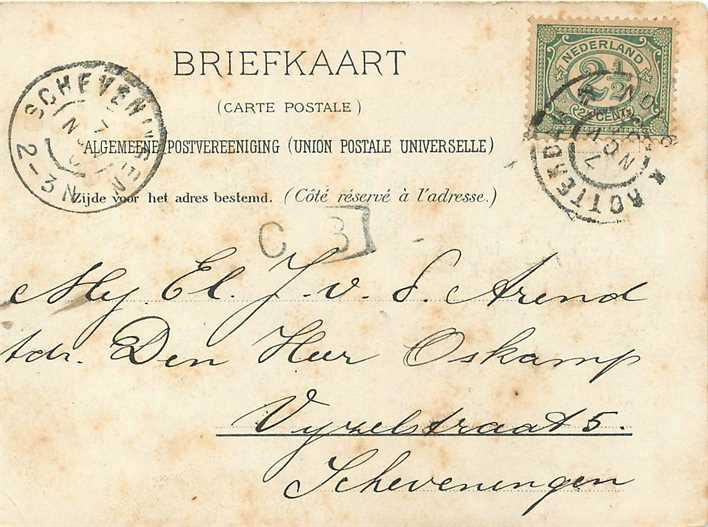 BRIEFKAART
(CARTE POSTALE)
ALGEMEENE POSTVEREENIGING (UNION POSTALE UNIVERSELLE)
Zijde voor het adres bestemd. (Côté réservé à l'adresse.)
NEDERLAND
2½
2½ CENT
SCHEVENINGEN
2-3N
ROTTERDAM
C 3
Mej. El. J. v. d. Arend
Adr. Den Heer Oskamp
Vyzelstraat 5.
Scheveningen